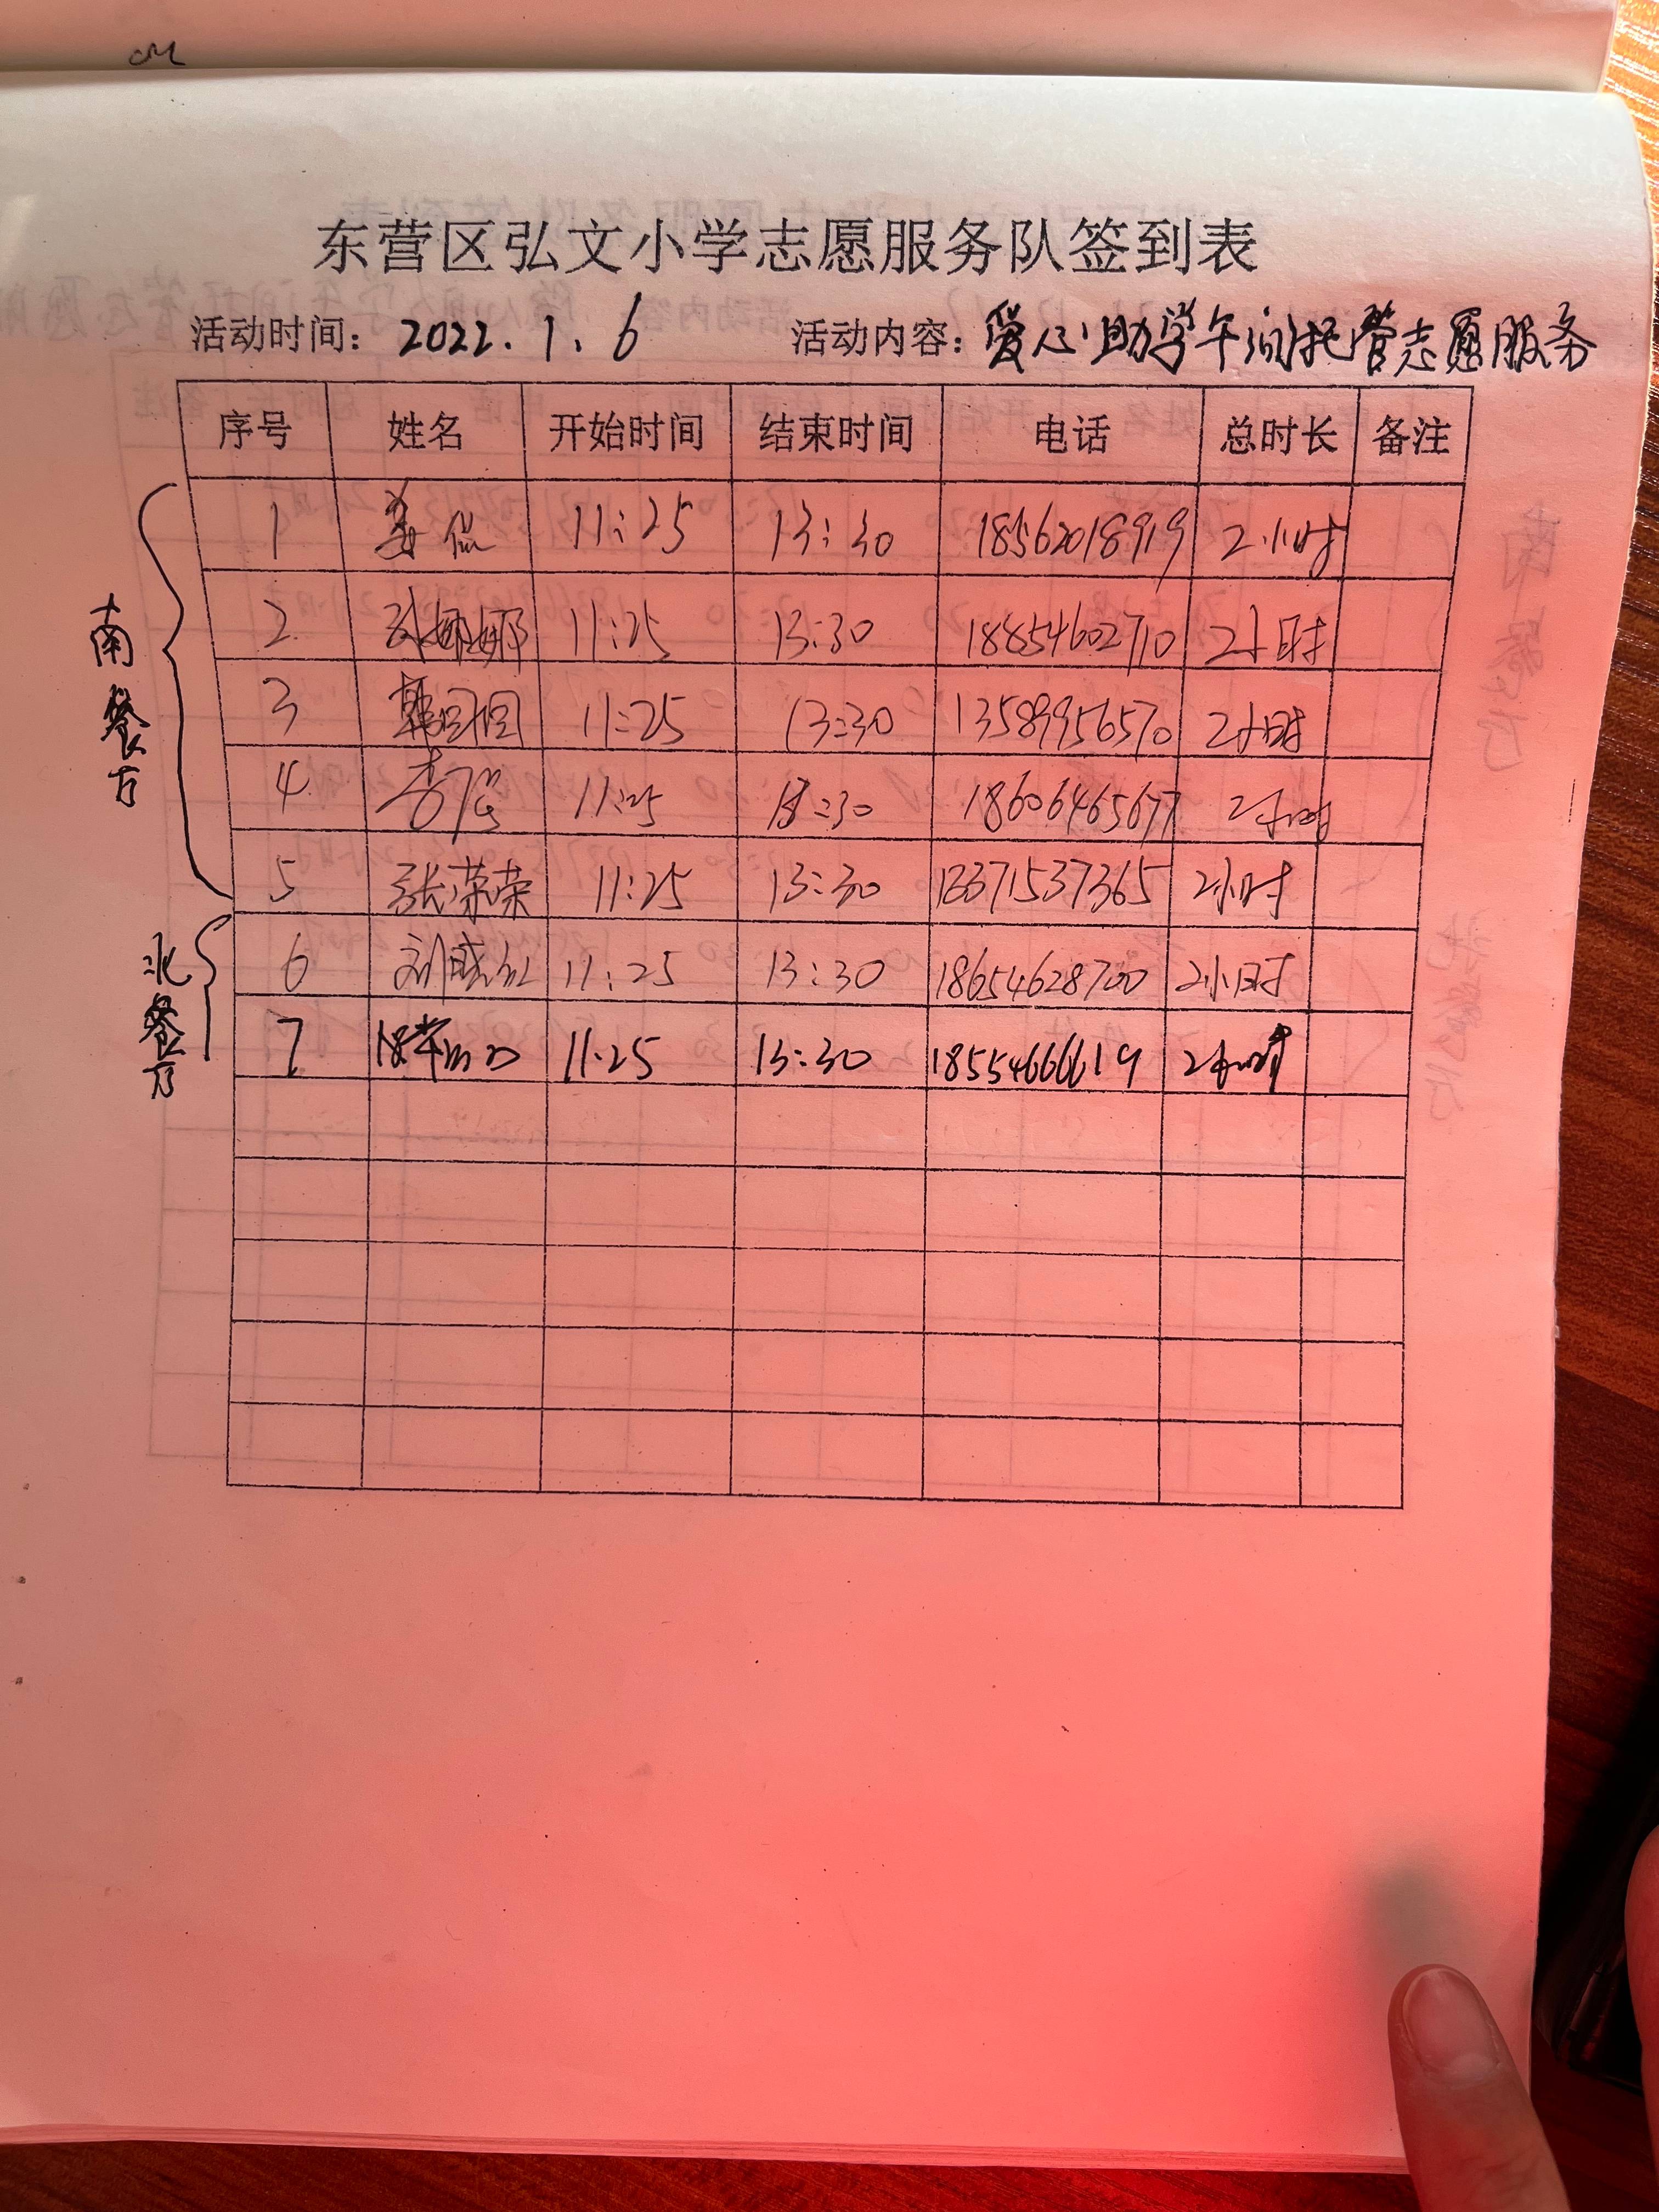 东营区弘文小学志愿服务队签到表
活动时间：2022.1.6 活动内容：爱心助学午间托管志愿服务
序号 姓名 开始时间 结束时间 电话 总时长 备注
南餐厅
1 11:25 13:30 18562018919 2小时
2 11:25 13:30 18854602710 2小时
3 11:25 13:30 13589956570 2小时
4 11:25 13:30 18606465677 2小时
5 张荣荣 11:25 13:30 13371537365 2小时
北餐厅
6 11:25 13:30 18654628700 2小时
7 11:25 13:30 18554666619 2小时